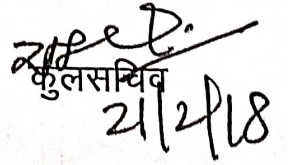 कुलसचिव
21/2/18